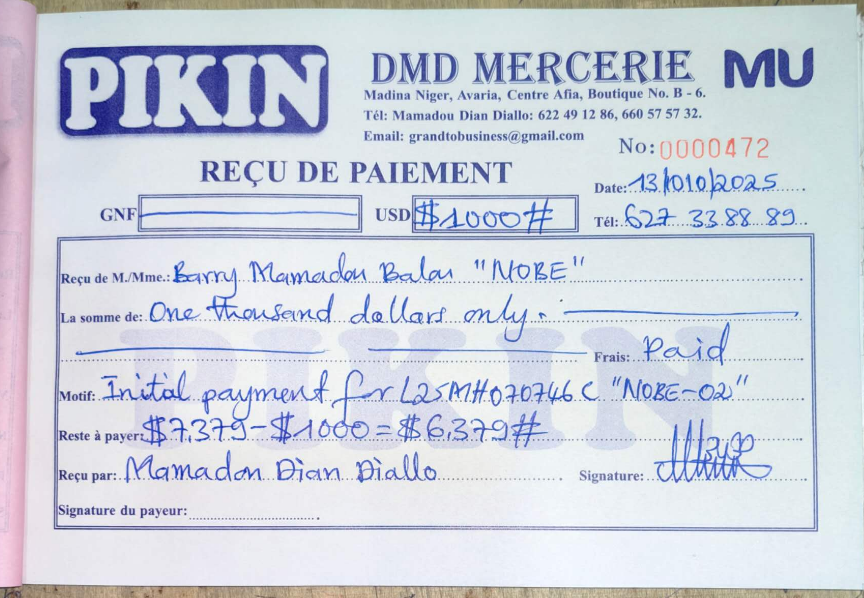 PIKIN
DMD MERCERIE
MU
Madina Niger, Avaria, Centre Afia, Boutique No. B - 6.
Tél: Mamadou Dian Diallo: 622 49 12 86, 660 57 57 32.
Email: grandtobusiness@gmail.com
No: 0000472
REÇU DE PAIEMENT
Date: 13/010/2025
GNF USD $1000#
Tél: 627 33 88 89
Reçu de M./Mme.: Barry Mamadou Balou "NOBE"
La somme de: One thousand dollars only.
Frais: Paid
PIKIN
Motif: Inital payment for L25MH070746C "NOBE-02"
Reste à payer: $7,379-$1000=$6,379#
Reçu par: Mamadou Dian Diallo Signature:
Signature du payeur: